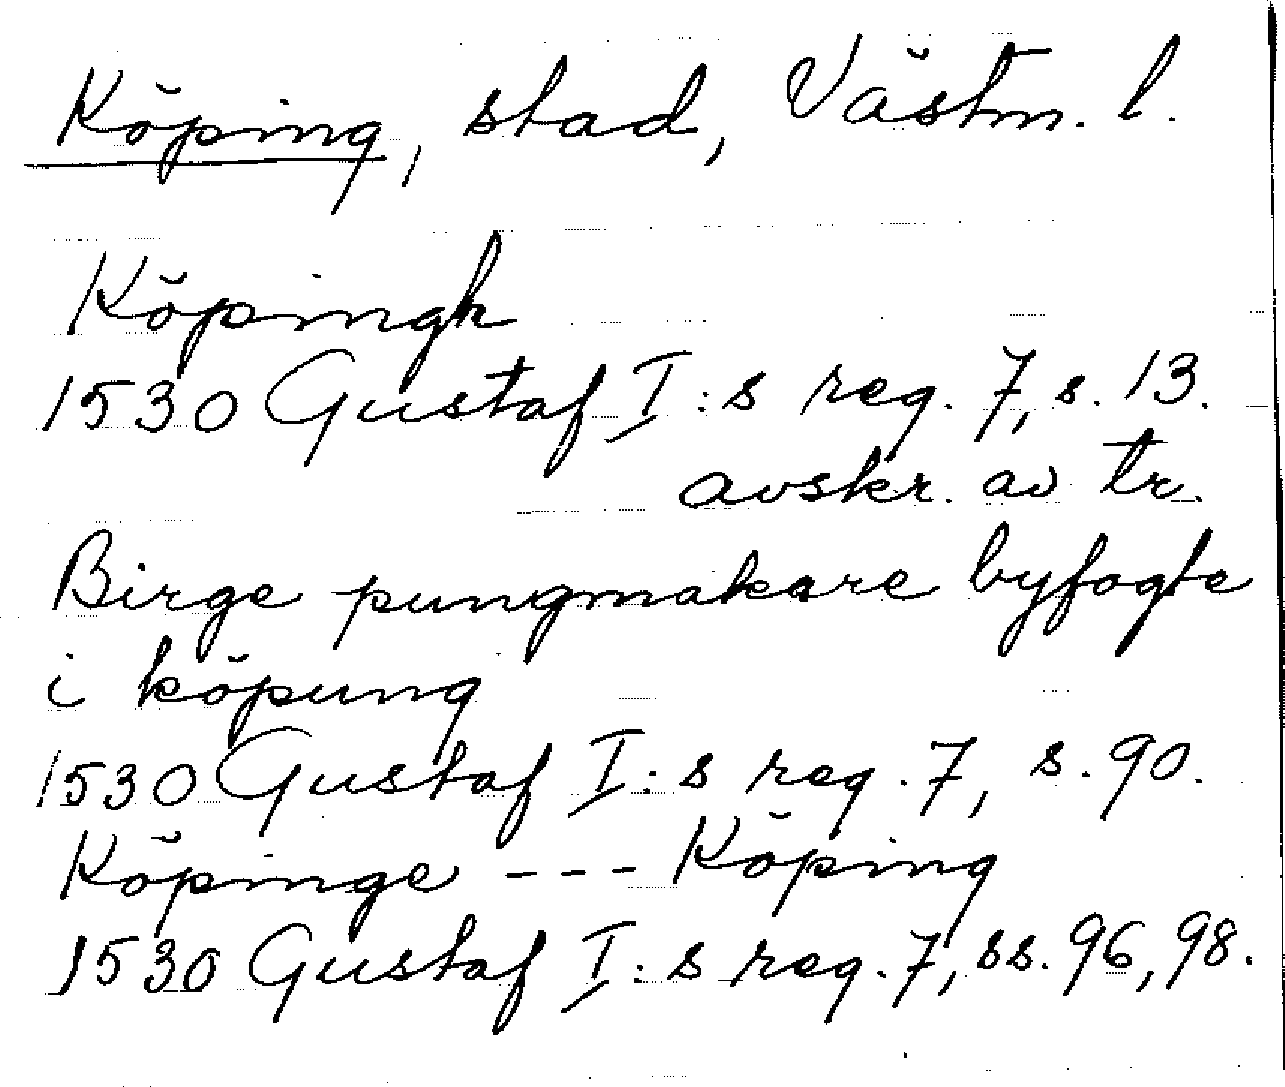 Köping, stad, Västm. l.
Köpingh
1530 Gustaf I:s reg. 7, s. 13.
avskr. av tr.
Birge pungmakare byfogte
i köpung
1530 Gustaf I:s reg. 7, s. 90.
Köpinge --- Köping
1530 Gustaf I:s reg. 7, ss. 96, 98.